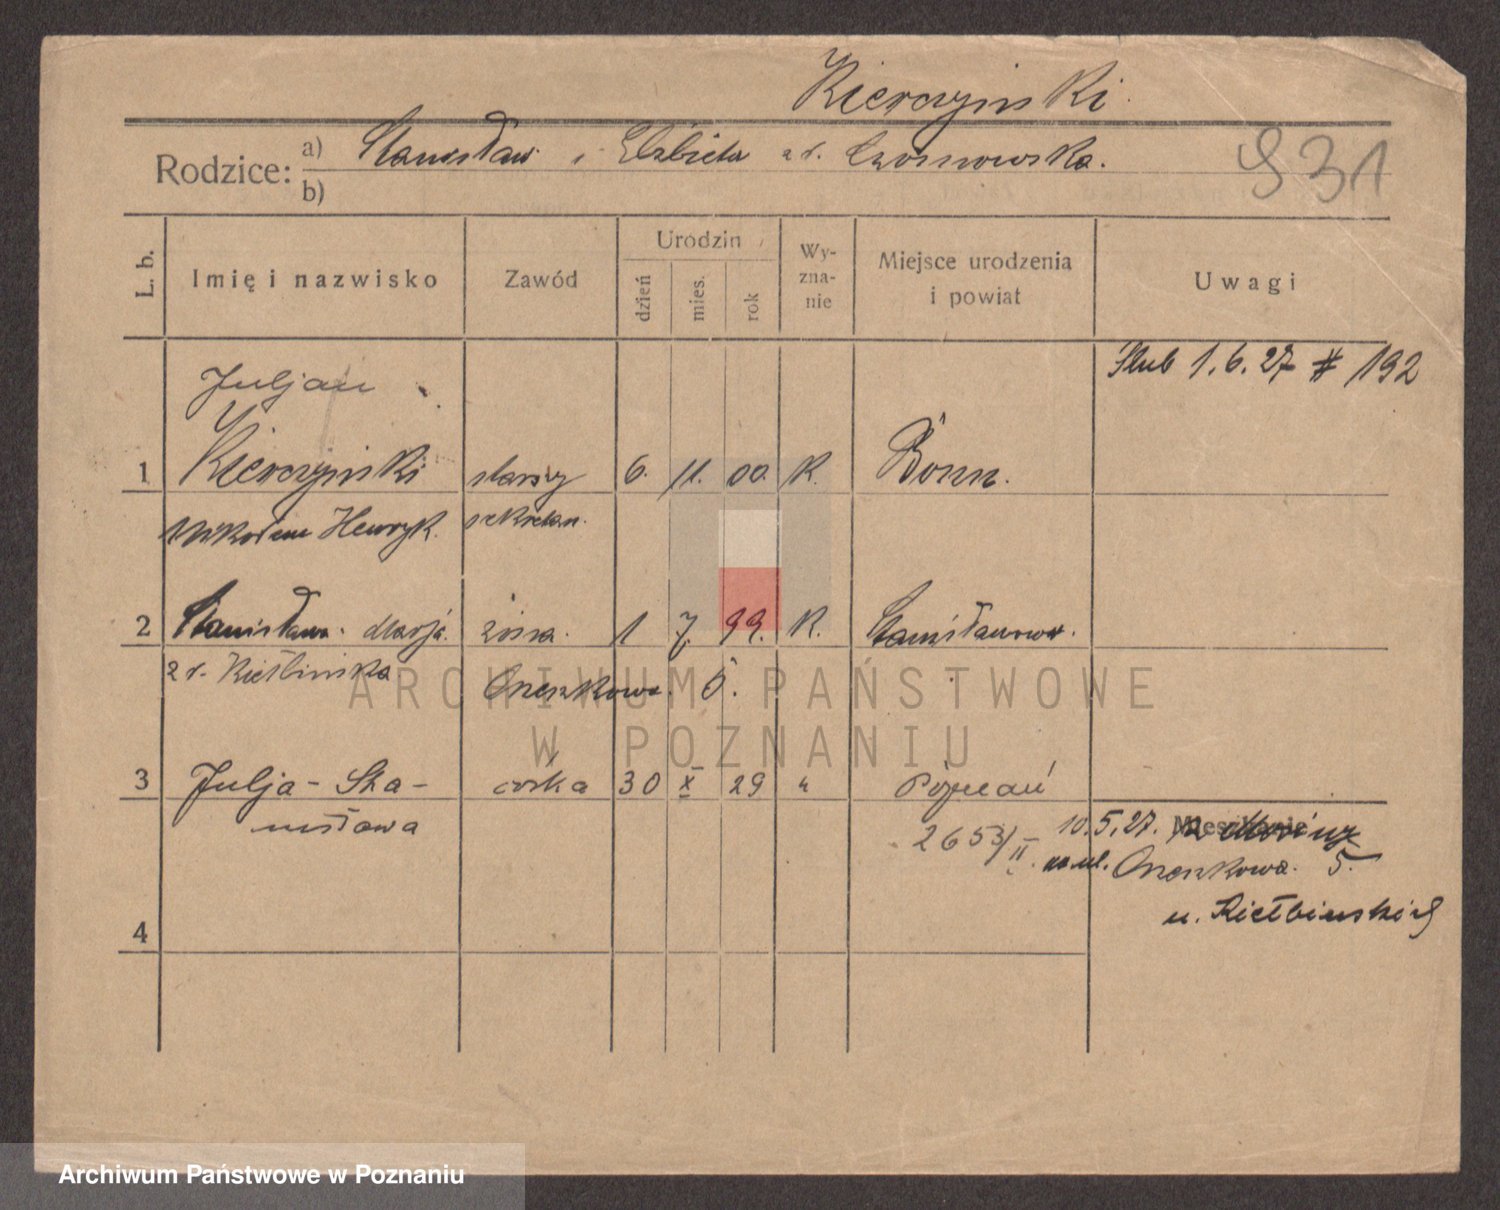 Kierczyński
Rodzice: a) Stanisław i Elżbieta z d. Czosnowska.
b)
931
L. b.
Imię i nazwisko
Zawód
Urodzin
dzień
mies.
rok
Wy-
zna-
nie
Miejsce urodzenia
i powiat
Uwagi
Ślub 1.6.27 # 192
Juljan
1 Kierczyński starszy 6. 11. 00. K. Bonn.
Henryk. sekretarz.
2 Stanisława Marja. żona. 1 7. 99. K. Stanisławowo.
z d. Kiełbińska
Orzeszkowa. 5.
ARCHIWUM PAŃSTWOWE
W POZNANIU
3 Julja - Sta- córka 30 X 29 " Poznań
nisława
2653/II
10.5.27. Mieszkanie
na ul. Orzeszkowa. 5.
u. Kiełbińskiej
4
Archiwum Państwowe w Poznaniu